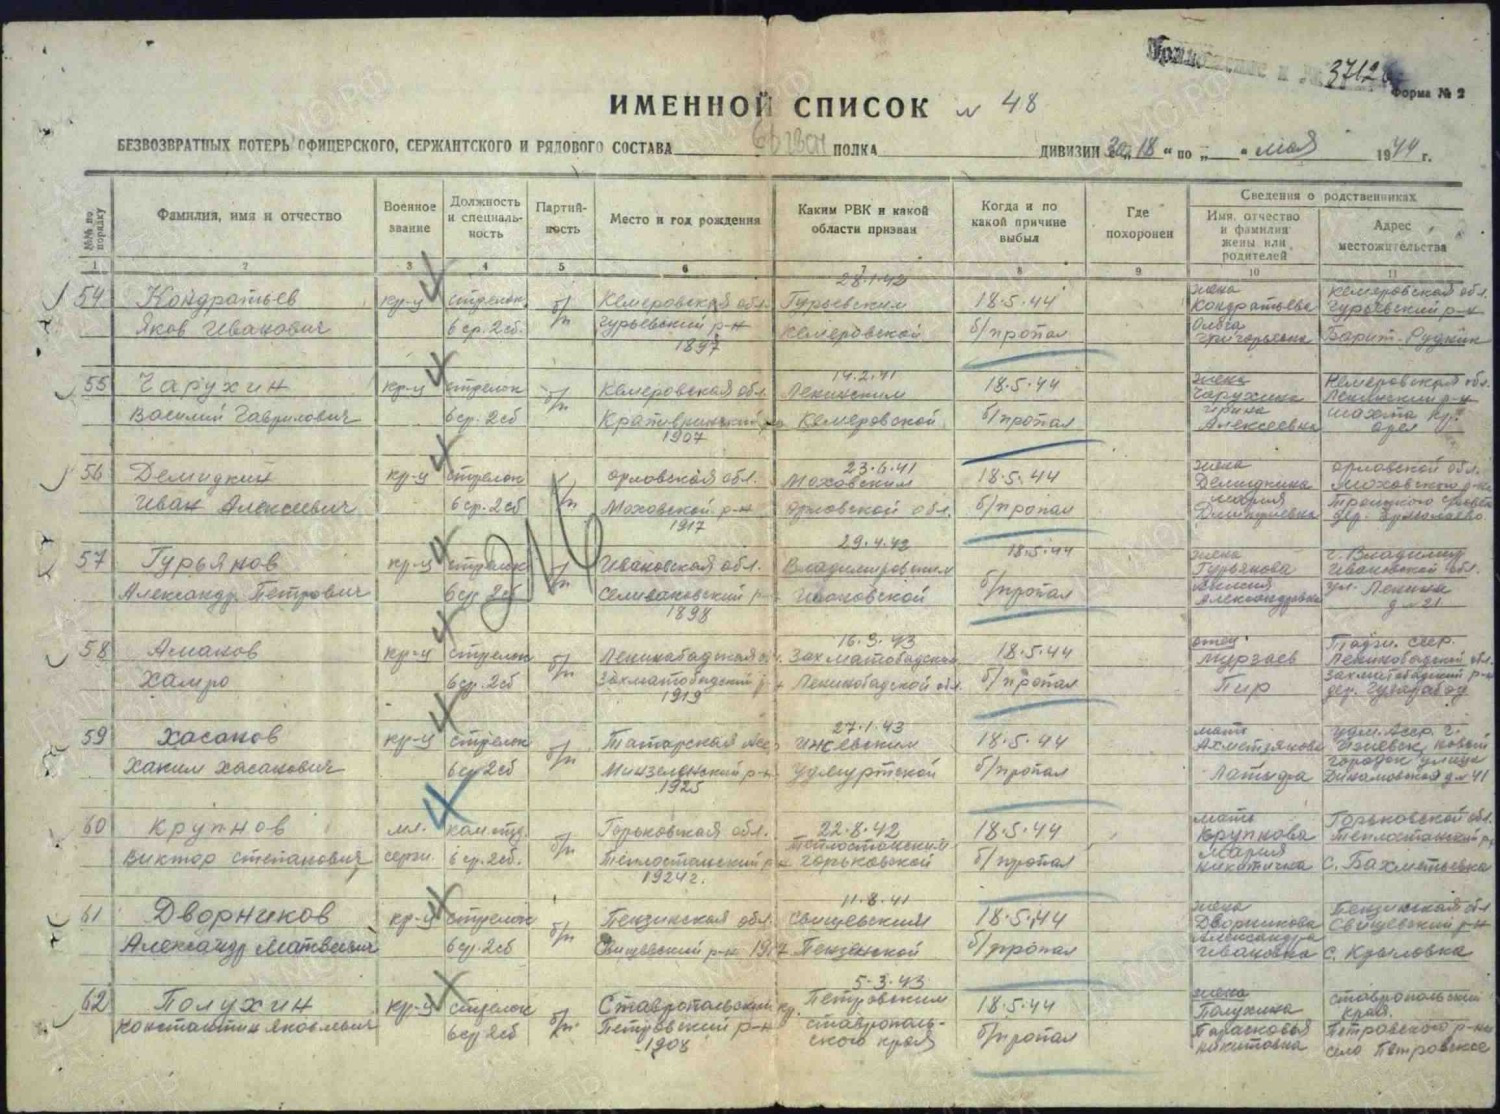 Приложение к № 37126
Форма № 2
ИМЕННОЙ СПИСОК № 48
БЕЗВОЗВРАТНЫХ ПОТЕРЬ ОФИЦЕРСКОГО, СЕРЖАНТСКОГО И РЯДОВОГО СОСТАВА ПОЛКА ДИВИЗИИ 18 " по „ " мая 1944 г.
№№ по порядку
Фамилия, имя и отчество
Военное звание
Должность и специальность
Партийность
Место и год рождения
Каким РВК и какой области призван
Когда и по какой причине выбыл
Где похоронен
Сведения о родственниках
Имя, отчество и фамилия жены или родителей
Адрес местожительства
1 2 3 4 5 6 7 8 9 10 11
28.1.42 жена Кемеровская обл.
54 Кондратьев кр-ц стрелок б/п Кемеровская обл. Гурьевским 18.5.44 Кондратьева Гурьевский р-н
Яков Иванович 6 ср. 2сб. Гурьевский р-н Кемеровской б/пропал Ольга Григорьевна Барит. Рудник
1897
14.2.41 жена Кемеровская обл.
55 Чарухин кр-ц стрелок б/п Кемеровская обл. Ленинским 18.5.44 Чарухина Ленинский р-н
Василий Гаврилович 6 ср. 2сб Кемеровской б/пропал Ирина Алексеевна шахта
1907
23.6.41 жена Орловской обл.
56 Демидкин кр-ц стрелок б/п Орловская обл. Моховским 18.5.44 Демидкина Моховского р-на
Иван Алексеевич 6 ср. 2сб Моховской р-н Орловской обл. б/пропал Мария Дмитриевна Троицкого дер.
1917
29.4.42 18.5.44 жена г. Владимир
57 Гурьянов кр-ц стрелок б/п Ивановская обл. Владимирским Гурьянова Ивановской обл.
Александр Петрович 6 ср. 2сб Селивановский р-н Ивановской б/пропал Александровна ул. Ленина
1898 д № 21
16.3.43 отец Тадж. сср.
58 Аманов кр-ц стрелок б/п Ленинабадская Захматабадским 18.5.44 Мурзаев Ленинабадской обл.
Хамро 6 ср. 2сб Захматабадский р-н Ленинабадской обл. б/пропал Пир Захматабадский р-н дер.
1919
27.1.43 мать Удм. Асср. г.
59 Хасанов кр-ц стрелок б/п Татарская Асср Ижевским 18.5.44 Ахметзянова Ижевск, новый городок улица
Хаким Хасанович 6 ср 2сб Минзелинский р-н Удмуртской б/пропал Латыфа Динамовская д № 41
1925
22.8.42 мать Горьковской обл.
60 Крупнов мл. ком. отд. б/п Горьковская обл. Теплостанским 18.5.44 Крупнова Теплостанский р
Виктор Степанович серж. 6 ср. 2сб. Теплостанский р-н Горьковской б/пропал Мария Никитична с. Бахметьевка
1924 г.
11.8.41 жена Пензинская обл
61 Дворников кр-ц стрелок б/п Пензинская обл. Свищевским 18.5.44 Дворникова Свищевский р-н
Александр Матвеевич 6 ср 2сб Свищевский р-н 1907 Пензенской б/пропал Александра Ивановна с. Крыловка
5.3.43 жена Ставропольский край.
62 Полухин кр-ц стрелок б/п Ставропольский кр. Петровским 18.5.44 Полухина Петровского р-на
Константин Яковлевич 6 ср 2сб Петровский р-н Ставропольского края б/пропал Парасковья Никитовна село Петровское
1908